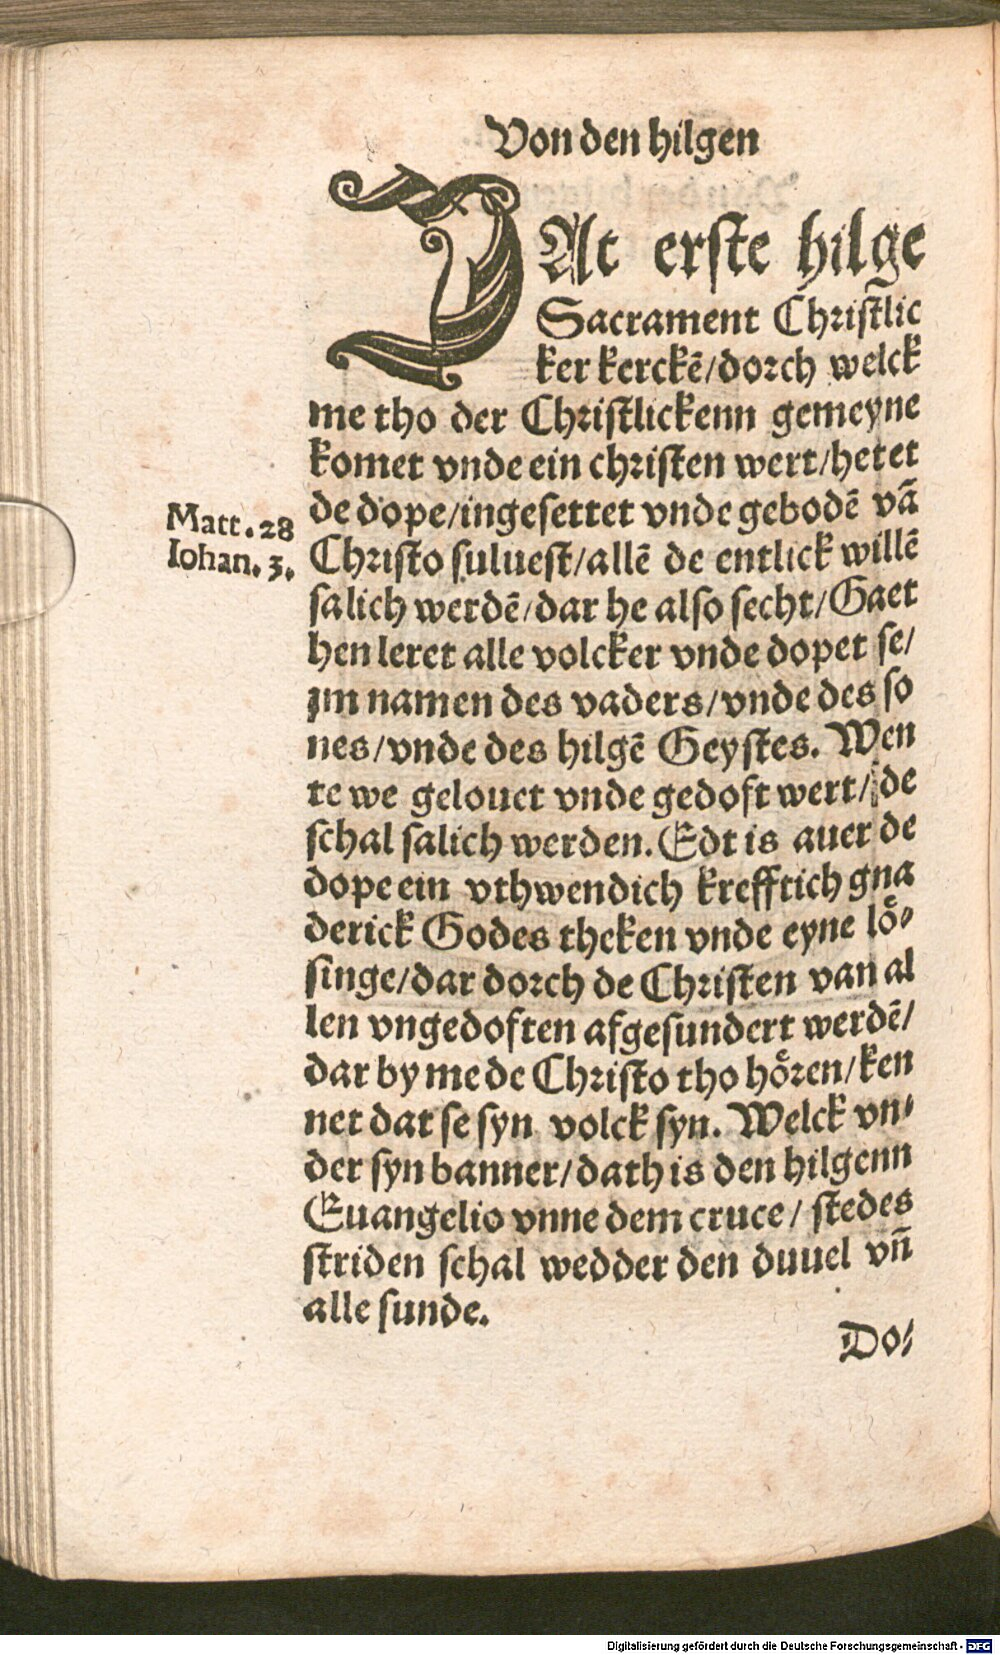 Von den hilgen
DAt erste hilge
Sacrament Christlic
ker kerckē/dorch welck
me tho der Christlickenn gemeyne
komet vnde ein christen wert/hetet
de dope/ingesettet vnde gebodē vā
Matt. 28
Iohan. 3.
Christo suluest/allē de entlick willē
salich werdē/dar he also secht/Gaet
hen leret alle volcker vnde dopet se/
im namen des vaders/vnde des so
nes/vnde des hilgē Geystes. Wen
te we gelouet vnde gedoft wert/de
schal salich werden. Edt is auer de
dope ein vthwendich krefftich gna
derick Godes theken vnde eyne lö⸗
singe/dar dorch de Christen van al
len vngedoften afgesundert werdē/
dar by me de Christo tho hören/ken
net dat se syn volck syn. Welck vn⸗
der syn banner/dath is den hilgenn
Euangelio vnne dem cruce/ stedes
striden schal wedder den duuel vn̄
alle sunde.
Do⸗
Digitalisierung gefördert durch die Deutsche Forschungsgemeinschaft - DFG